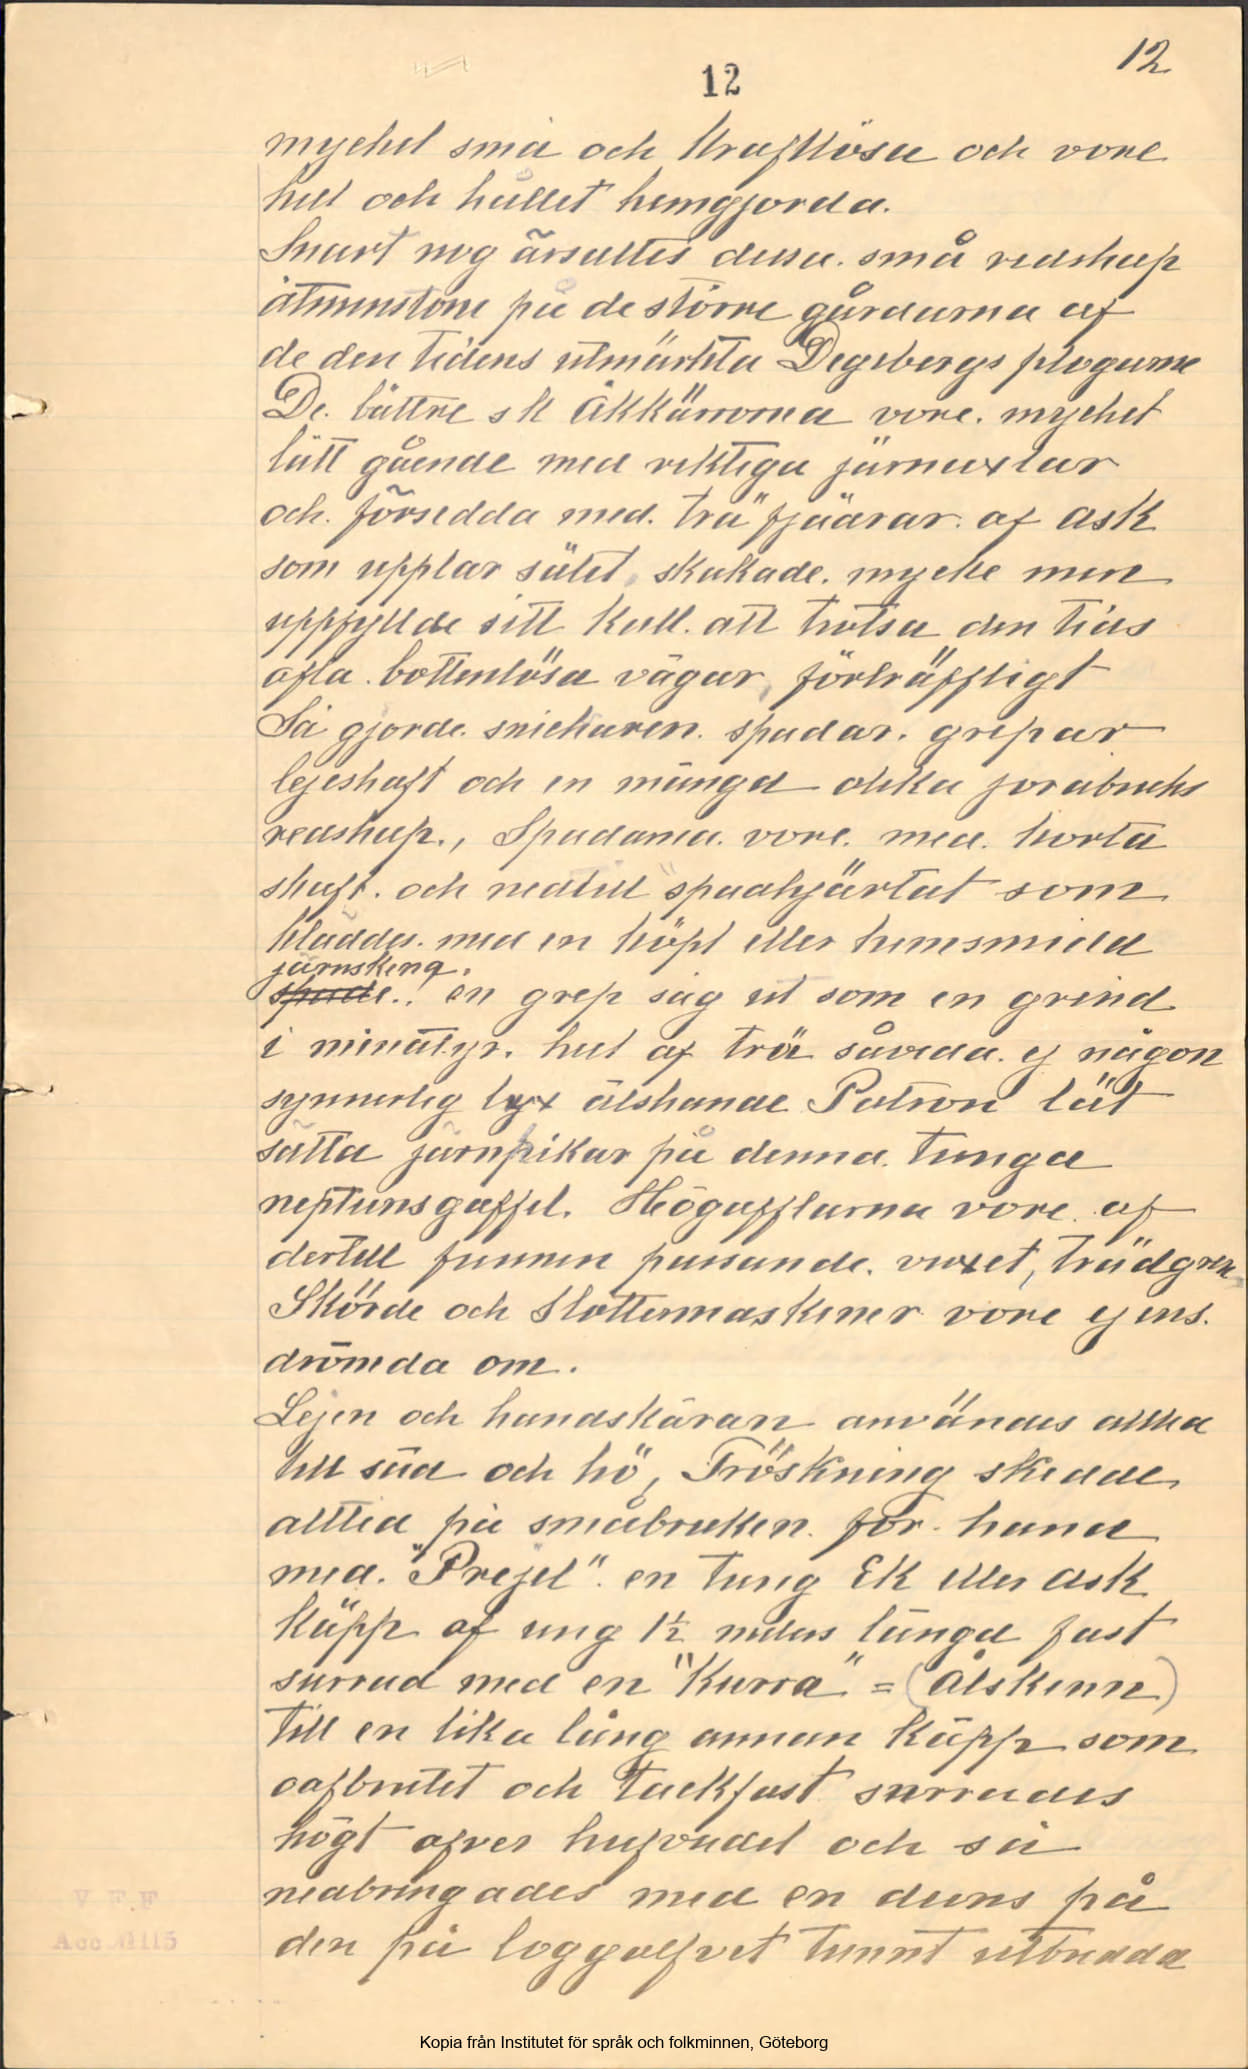 12
12
mycket små och kraftlösa och vore
helt och hållet hemgjorda.
Snart nog ärsattes dessa. små redskap
åtminstone på de större gårdarna af
de den tidens utmärkta Degebergs plogarne
De. bättre sk Åkkärrorna vore. mycket
lätt gående med riktiga järnaxlar
och. försedda med. trä"fjäärar. af ask
som upplar sätet, skakade. mycke men
uppfyllde sitt kall. att trotsa den tids
ofta. bottenlösa vägar, förträffligt
Så gjorde. snickaren. spadar. grepar
lejeskaft och en mängd olika jordbruks
redskap., Spadarna. vore. med. korta
skaft. och nedtill "spadhjärtat som
kläddes. med en köpt eller hemsmidd
järnskena.
spade.. en grep såg ut som en grind
i minatyr. helt af trä såveda. ej någon
synnerlig lyx älskande Patron lät
sätta järnpikar på denna. tunga
neptunsgaffel. Högafflarna vore. af
dertill funnen passande. vuxet, trädgren
Skörde och Slottermaskiner vore ej ens.
drömda om.
Lejen och handskäran användes alltid
till säd och hö, Tröskning skedde
alltid på småbruken. för. hand
med. "Prejel". en tung Ek eller ask
käpp af ung 1½ meters längd fast
surrad med en "Kurra" = (Ålskinn)
till en lika lång annan käpp som
oafbrutet och tackfast surrades
högt ofver hufvudet och så
nedbringades med en duns på
den på loggolfvet tunnt utbredda
V. F. F
Acc 1115
Kopia från Institutet för språk och folkminnen, Göteborg